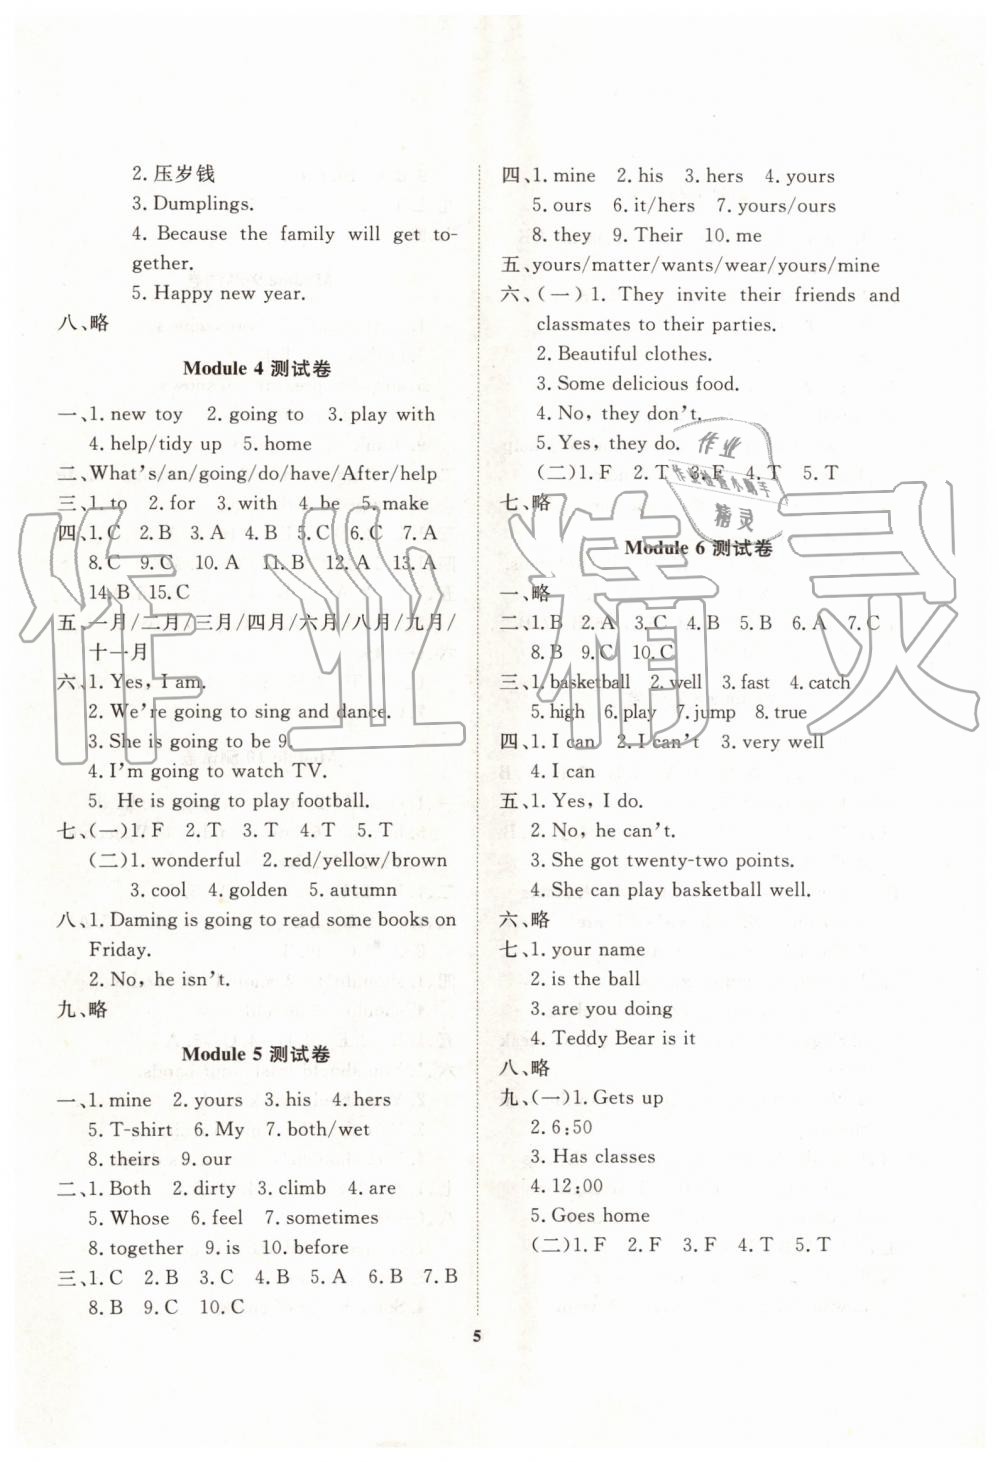 2. 压岁钱
3. Dumplings.
4. Because the family will get to-
gether.
5. Happy new year.
八、略
Module 4 测试卷
一、1. new toy 2. going to 3. play with
4. help/tidy up 5. home
二、What's/an/going/do/have/After/help
三、1. to 2. for 3. with 4. be 5. make
四、1. C 2. B 3. A 4. B 5. C 6. C 7. A
8. C 9. C 10. A 11. B 12. A 13. A
14. B 15. C
五、一月/二月/三月/四月/六月/八月/九月/
十一月
六、1. Yes, I am.
2. We're going to sing and dance.
3. She is going to be 9.
4. I'm going to watch TV.
5. He is going to play football.
七、(一)1. F 2. T 3. T 4. T 5. T
(二)1. wonderful 2. red/yellow/brown
3. cool 4. golden 5. autumn
八、1. Daming is going to read some books on
Friday.
2. No, he isn't.
九、略
Module 5 测试卷
一、1. mine 2. yours 3. his 4. hers
5. T-shirt 6. My 7. both/wet
8. theirs 9. our
二、1. Both 2. dirty 3. climb 4. are
5. Whose 6. feel 7. sometimes
8. together 9. is 10. before
三、1. C 2. B 3. C 4. B 5. A 6. B 7. B
8. B 9. C 10. C
四、1. mine 2. his 3. hers 4. yours
5. ours 6. it/hers 7. yours/ours
8. they 9. Their 10. me
五、yours/matter/wants/wear/yours/mine
六、(一)1. They invite their friends and
classmates to their parties.
2. Beautiful clothes.
3. Some delicious food.
4. No, they don't.
5. Yes, they do.
(二)1. F 2. T 3. F 4. T 5. T
七、略
Module 6 测试卷
一、略
二、1. B 2. A 3. C 4. B 5. B 6. A 7. C
8. B 9. C 10. C
三、1. basketball 2. well 3. fast 4. catch
5. high 6. play 7. jump 8. true
四、1. I can 2. I can't 3. very well
4. I can
五、1. Yes, I do.
2. No, he can't.
3. She got twenty-two points.
4. She can play basketball well.
六、略
七、1. your name
2. is the ball
3. are you doing
4. Teddy Bear is it
八、略
九、(一)1. Gets up
2. 6:50
3. Has classes
4. 12:00
5. Goes home
(二)1. F 2. F 3. F 4. T 5. T
5
作业精灵
作业
作业检查小助手
精灵